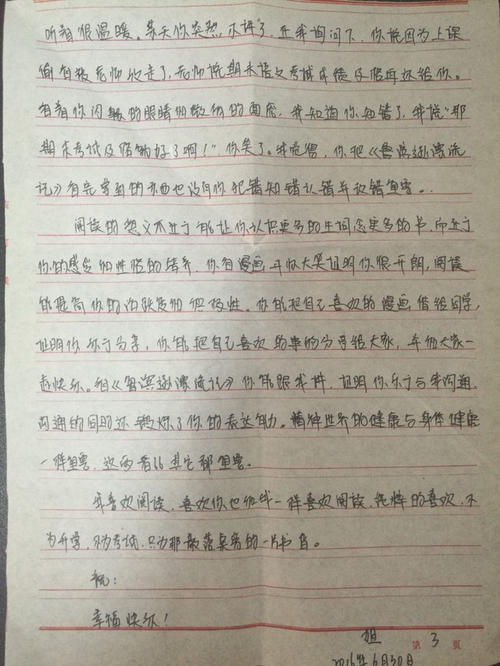 听着很温暖。某天你突然不讲了，在我询问下，你说因为上课
偷看被老师收走了，老师说期末语文考试成绩及格再还给你。
看着你闪躲的眼睛和微动的面庞，我知道你知错了，我说"那
期末考试及格就好了啊！"你笑了。我觉得，你把《鲁滨逊漂流
记》看完学到的东西也没有你犯错知错认错并改错重要。
阅读的意义不止于能让你认识更多的生词念更多的书，而在于
你的感知和性格的培养，你看漫画开怀大笑证明你很开朗，阅读
能提高你的活跃度和积极性。你能把自己喜欢的漫画借给同学，
证明你乐于分享，你能把自己喜欢的事物分享给大家，和大家一
起快乐。和《鲁滨逊漂流记》你能跟我讲，证明你乐于与我沟通，
沟通的同时还锻炼了你的表达能力。精神世界的健康与身体健康
一样重要，这两者比其它都重要。
我喜欢阅读，喜欢你也和我一样喜欢阅读，纯粹的喜欢，不
为升学，不为考试，只为那散落桌旁的一片书香。
祝：
幸福快乐！
姐
第 3 页
2016年6月30日